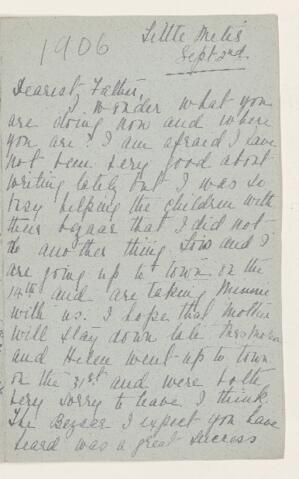 1906
Little Metis
Sept 2nd.
Dearest Father,
I wonder what you
are doing now and where
you are? I am afraid I have
not been very good about
writing lately but I was so
busy helping the children with
their bazaar that I did not
do another thing. Lois and I
are going up to town on the
14th and are taking Minnie
with us. I hope that Mother
will stay down late. Mrs
and Helen went up to town
on the 31st and were both
very sorry to leave I think.
The Bazaar I expect you have
heard was a great success